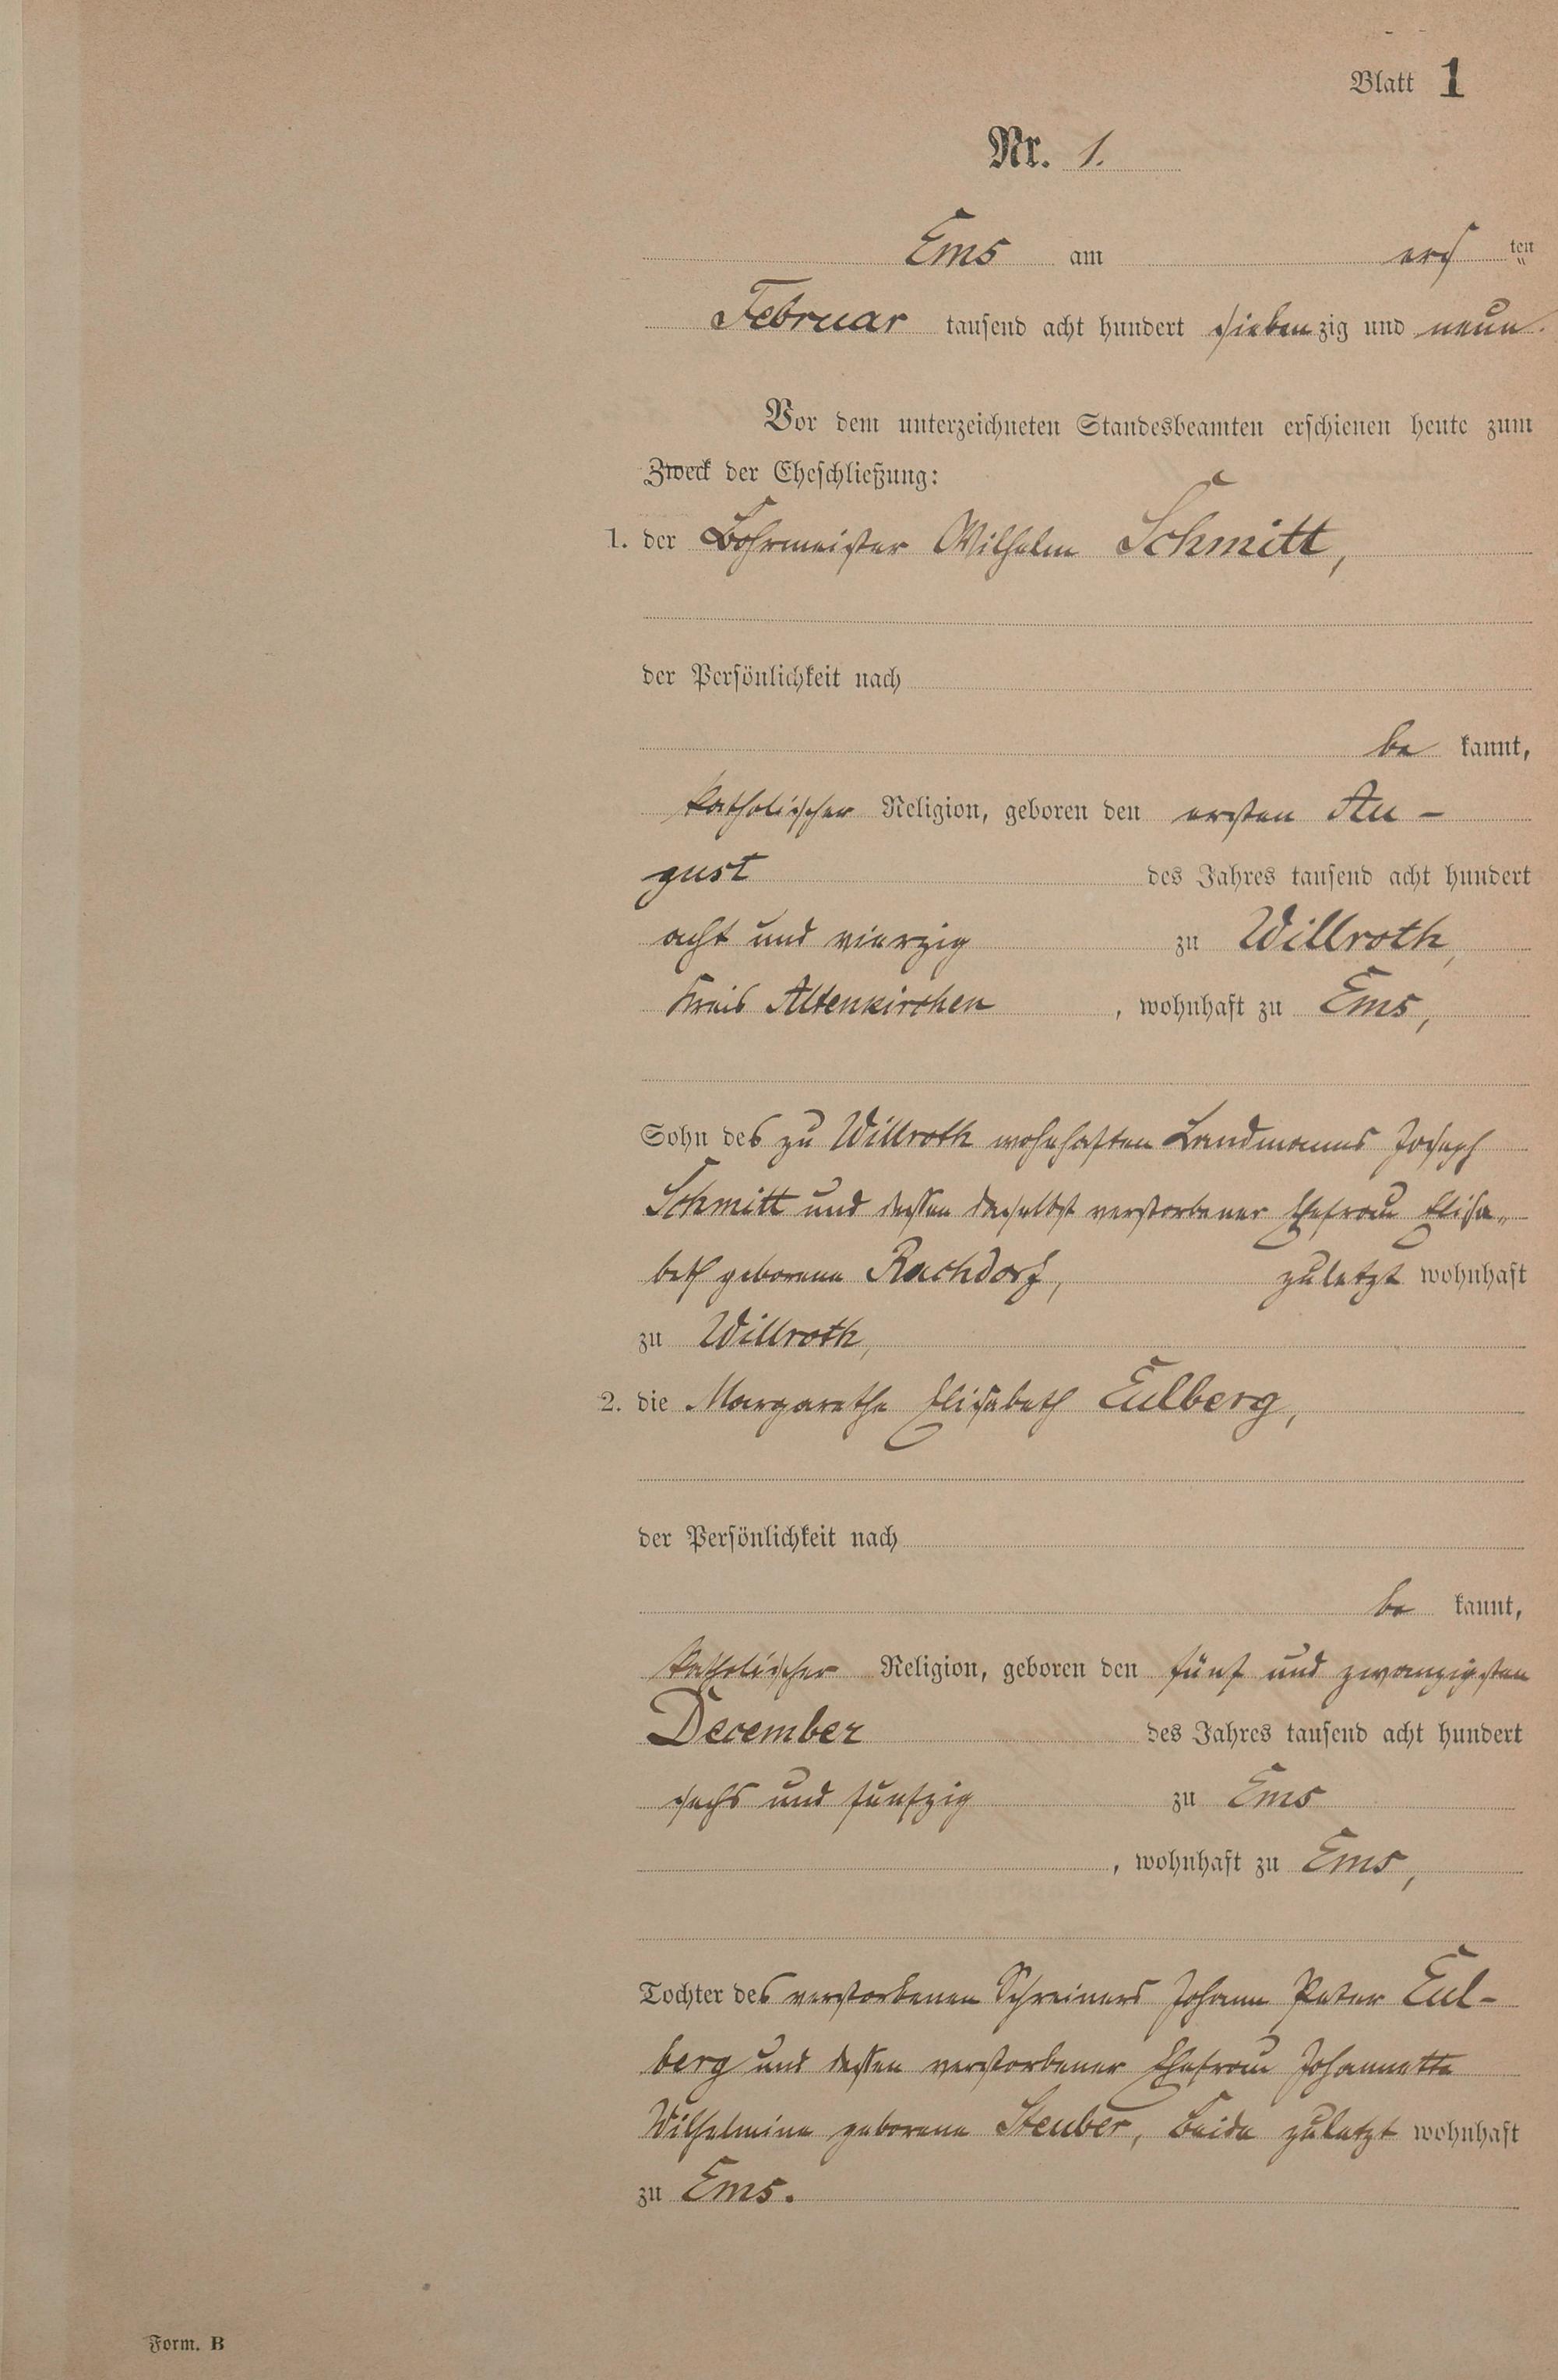 Blatt 1
Nr. 1.
Ems am ers ten
Februar tausend acht hundert siebenzig und neun.
Vor dem unterzeichneten Standesbeamten erschienen heute zum
Zweck der Eheschließung:
1. der Bohrmeister Wilhelm Schmitt,
der Persönlichkeit nach
be kannt,
katholischer Religion, geboren den ersten Au-
gust des Jahres tausend acht hundert
acht und vierzig zu Willroth,
Kreis Altenkirchen, wohnhaft zu Ems,
Sohn des zu Willroth wohnhaften Landmanns Joseph
Schmitt und dessen daselbst verstorbener Ehefrau Elisa-
beth geborene Rachdorf, zuletzt wohnhaft
zu Willroth,
2. die Margarethe Elisabeth Eulberg,
der Persönlichkeit nach
be kannt,
katholischer Religion, geboren den fünf und zwanzigsten
December des Jahres tausend acht hundert
sechs und fünfzig zu Ems
, wohnhaft zu Ems,
Tochter des verstorbenen Schreiners Johann Peter Eul-
berg und dessen verstorbener Ehefrau Johannette
Wilhelmine geborene Steuber, Beide zuletzt wohnhaft
zu Ems.
Form. B